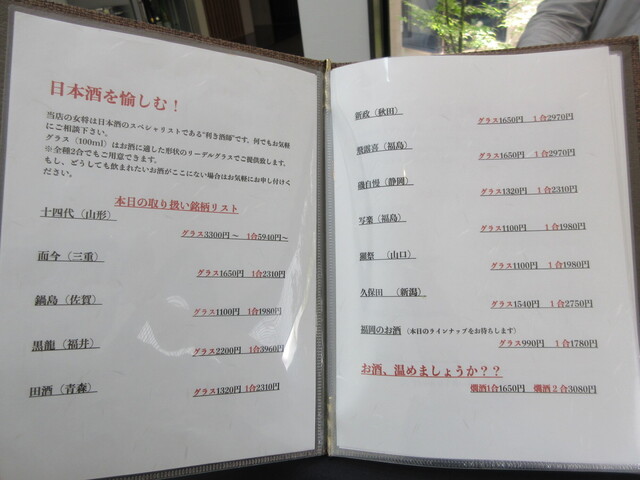 日本酒を愉しむ！
当店の女将は日本酒のスペシャリストである"利き酒師"です。何でもお気軽
にご相談下さい。
グラス（100ml）はお酒に適した形状のリーデルグラスでご提供致します。
※全種2合でもご用意できます。
もし、どうしても飲まれたいお酒がここにない場合はお気軽にお申し付けく
ださい。
本日の取り扱い銘柄リスト
十四代（山形）
グラス3300円～ 1合5940円～
而今（三重）
グラス1650円 1合2310円
鍋島（佐賀）
グラス1100円 1合1980円
黒龍（福井）
グラス2200円 1合3960円
田酒（青森）
グラス1320円 1合2310円
新政（秋田）
グラス1650円 1合2970円
飛露喜（福島）
グラス1650円 1合2970円
磯自慢（静岡）
グラス1320円 1合2310円
写楽（福島）
グラス1100円 1合1980円
獺祭 （山口）
グラス1100円 1合1980円
久保田 （新潟）
グラス1540円 1合2750円
福岡のお酒（本日のラインナップをお持ちします）
グラス990円 1合1780円
お酒、温めましょうか？？
燗酒1合1650円 燗酒2合3080円